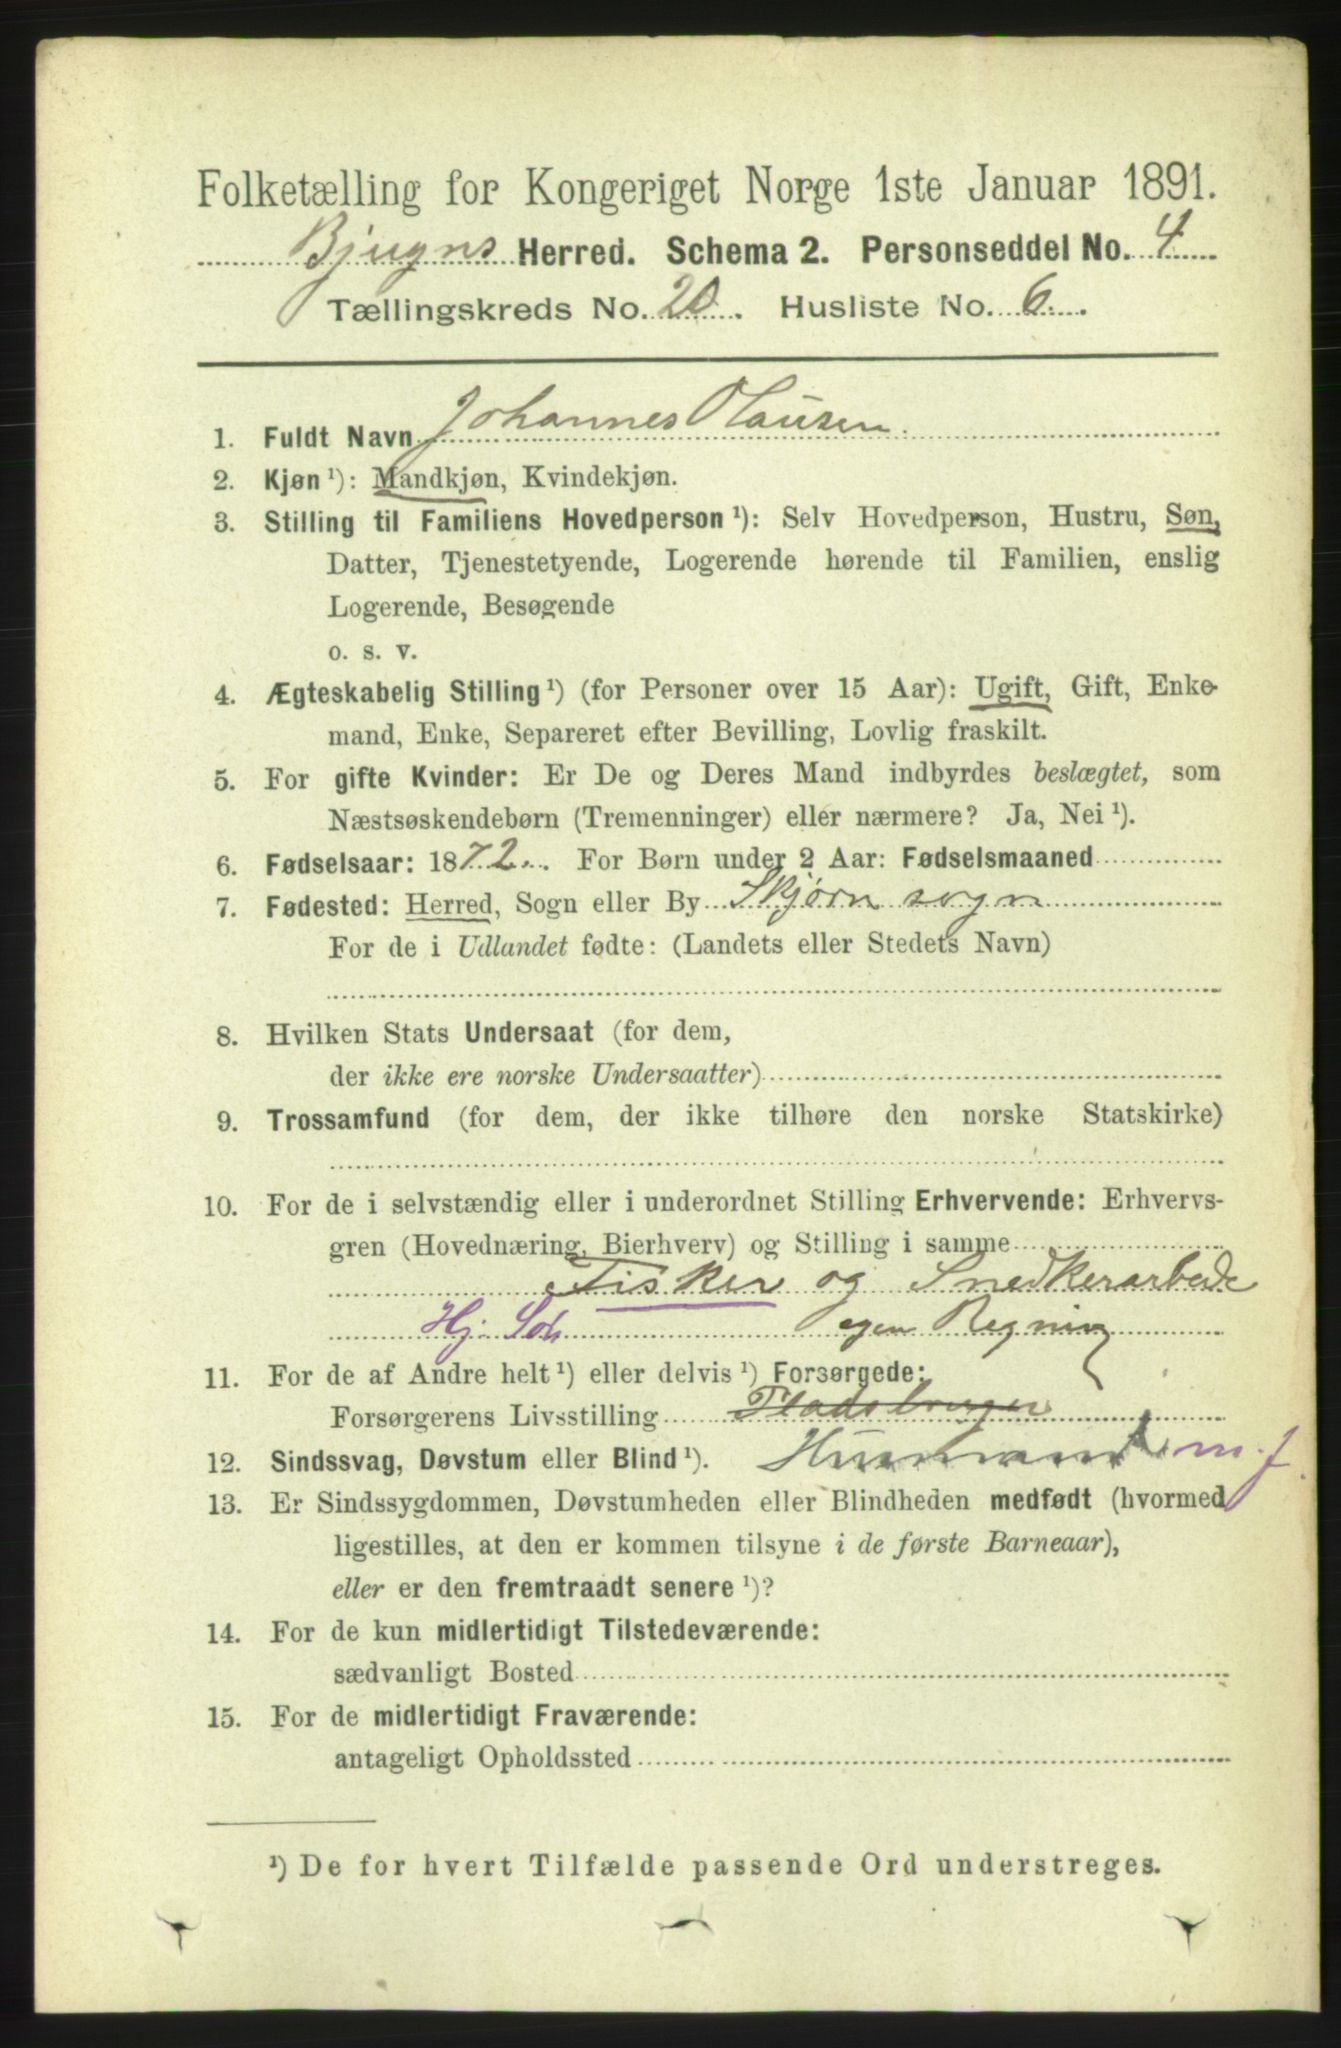 Folketælling for Kongeriget Norge 1ste Januar 1891.
Bjugns Herred. Schema 2. Personseddel No. 4
Tællingskreds No. 20. Husliste No. 6.
1. Fuldt Navn Johannes Olausen
2. Kjøn ¹): Mandkjøn, Kvindekjøn.
3. Stilling til Familiens Hovedperson ¹): Selv Hovedperson, Hustru, Søn,
Datter, Tjenestetyende, Logerende hørende til Familien, enslig
Logerende, Besøgende
o. s. v.
4. Ægteskabelig Stilling ¹) (for Personer over 15 Aar): Ugift, Gift, Enke-
mand, Enke, Separeret efter Bevilling, Lovlig fraskilt.
5. For gifte Kvinder: Er De og Deres Mand indbyrdes beslægtet, som
Næstsøskendebørn (Tremenninger) eller nærmere? Ja, Nei ¹).
6. Fødselsaar: 1872. For Børn under 2 Aar: Fødselsmaaned
7. Fødested: Herred, Sogn eller By Skjørn sogn
For de i Udlandet fødte: (Landets eller Stedets Navn)
8. Hvilken Stats Undersaat (for dem,
der ikke ere norske Undersaatter)
9. Trossamfund (for dem, der ikke tilhøre den norske Statskirke)
10. For de i selvstændig eller i underordnet Stilling Erhvervende: Erhvervs-
gren (Hovednæring, Bierhverv) og Stilling i samme
Fisker og Snedkerarbeide
Hj. Søn egen Regning
11. For de af Andre helt ¹) eller delvis ¹) Forsørgede:
Forsørgerens Livsstilling Pladsbruger
12. Sindssvag, Døvstum eller Blind ¹). Husmand m. J
13. Er Sindssygdommen, Døvstumheden eller Blindheden medfødt (hvormed
ligestilles, at den er kommen tilsyne i de første Barneaar),
eller er den fremtraadt senere ¹)?
14. For de kun midlertidigt Tilstedeværende:
sædvanligt Bosted
15. For de midlertidigt Fraværende:
antageligt Opholdssted
¹) De for hvert Tilfælde passende Ord understreges.